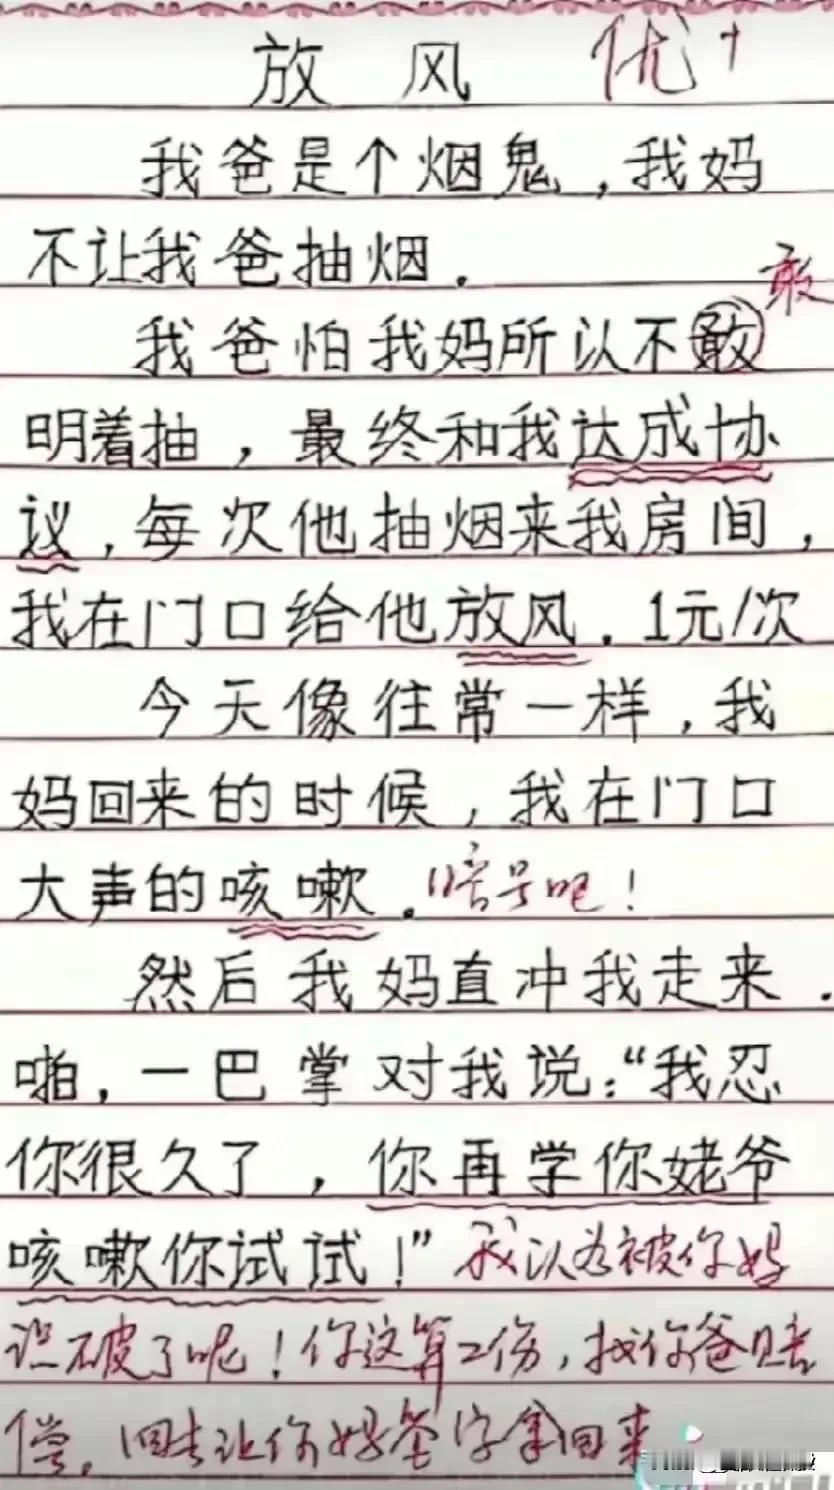 放风 优+
我爸是个烟鬼,我妈
不让我爸抽烟.
敢
我爸怕我妈所以不敢
明着抽,最终和我达成协
议,每次他抽烟来我房间,
我在门口给他放风.1元/次
今天像往常一样,我
妈回来的时候,我在门口
大声的咳嗽.暗号吧!
然后我妈直冲我走来.
啪,一巴掌对我说:“我忍
你很久了,你再学你姥爷
咳嗽你试试!”我以为被你妈
识破了呢!你这算工伤,找你爸赔
偿,回去让你妈签字拿回来